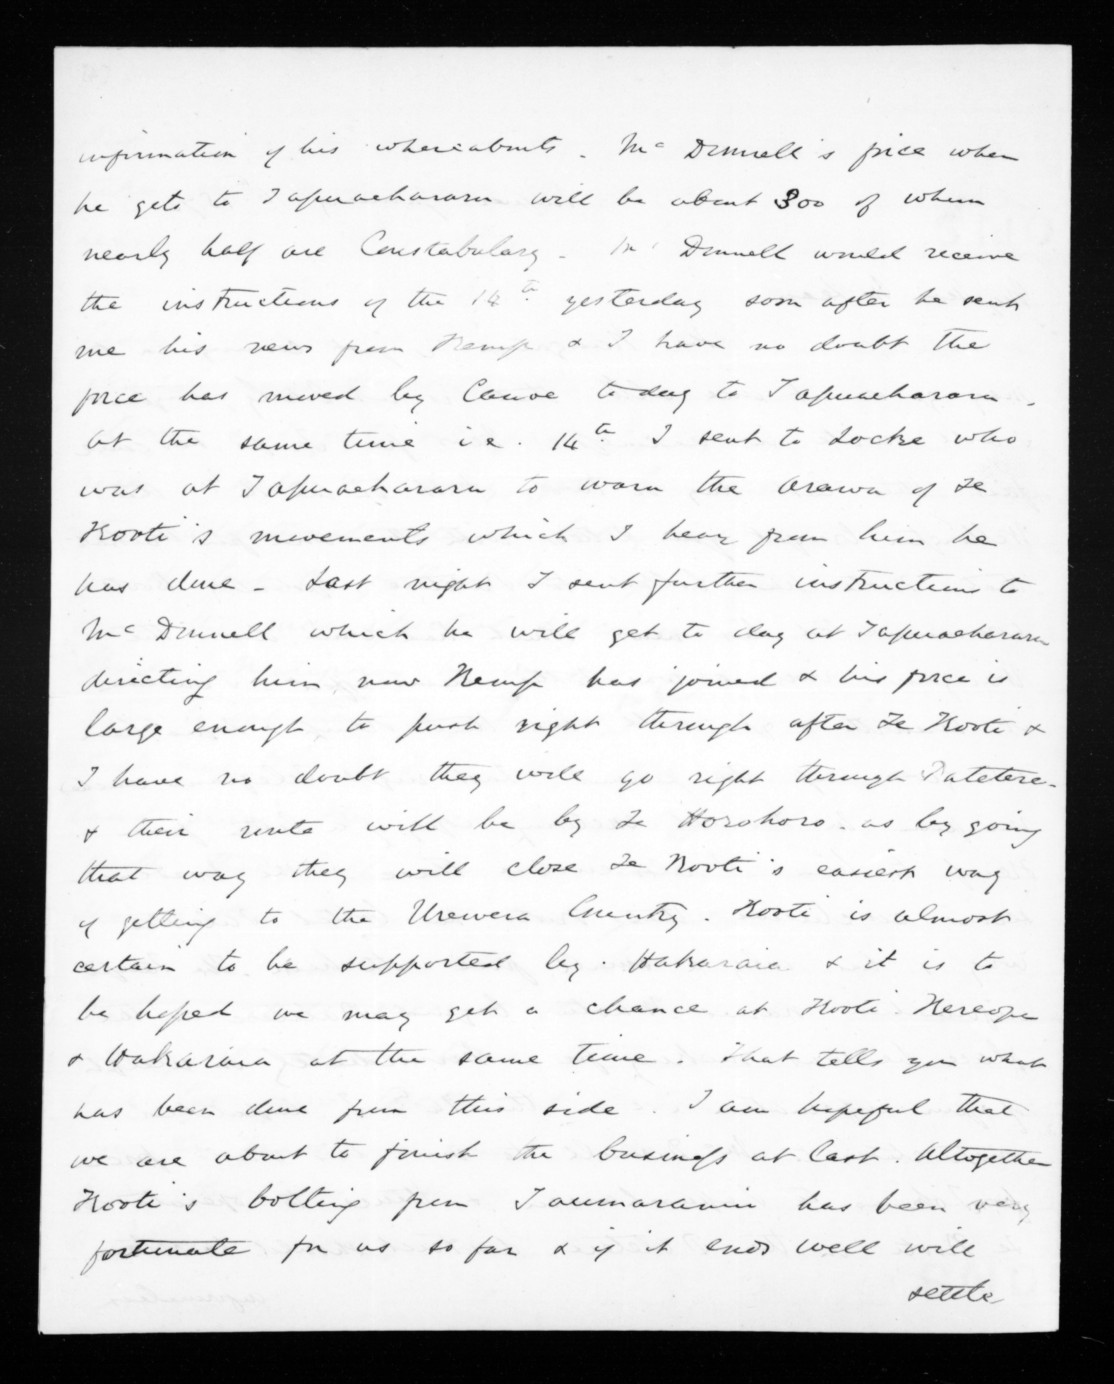 information of his whereabouts. McDonnell's force when
he gets to Tapuaeharara will be about 300 of whom
nearly half are Constabulary. McDonnell would receive
the instructions of the 14th yesterday soon after he sent
me his news from Kemp & I have no doubt the
force has moved by Canoe to day to Tapuaeharara.
At the same time i.e. 14th I sent to Locke who
was at Tapuaeharara to warn the Arawa of Te
Kooti's movements which I hear from him he
has done - Last night I sent further instructions to
McDonnell which he will get to day at Tapuaeharara
directing him, now Kemp has joined & his force is
large enough, to push right through after Te Kooti &
I have no doubt they will go right through Patetere -
& their route will be by Te Horohoro. as by going
that way they will close Te Kooti's easiest way
of getting to the Urewera Country. Kooti is almost
certain to be supported by Hakaraia & it is to
be hoped we may get a chance at Kooti Kereopa
& Hakaraia at the same time. That tells you what
has been done from this side. I am hopeful that
we are about to finish the business at last. Altogether
Kooti's bolting from Taumaranui has been very
fortunate for us so far & if it ends well will
settle